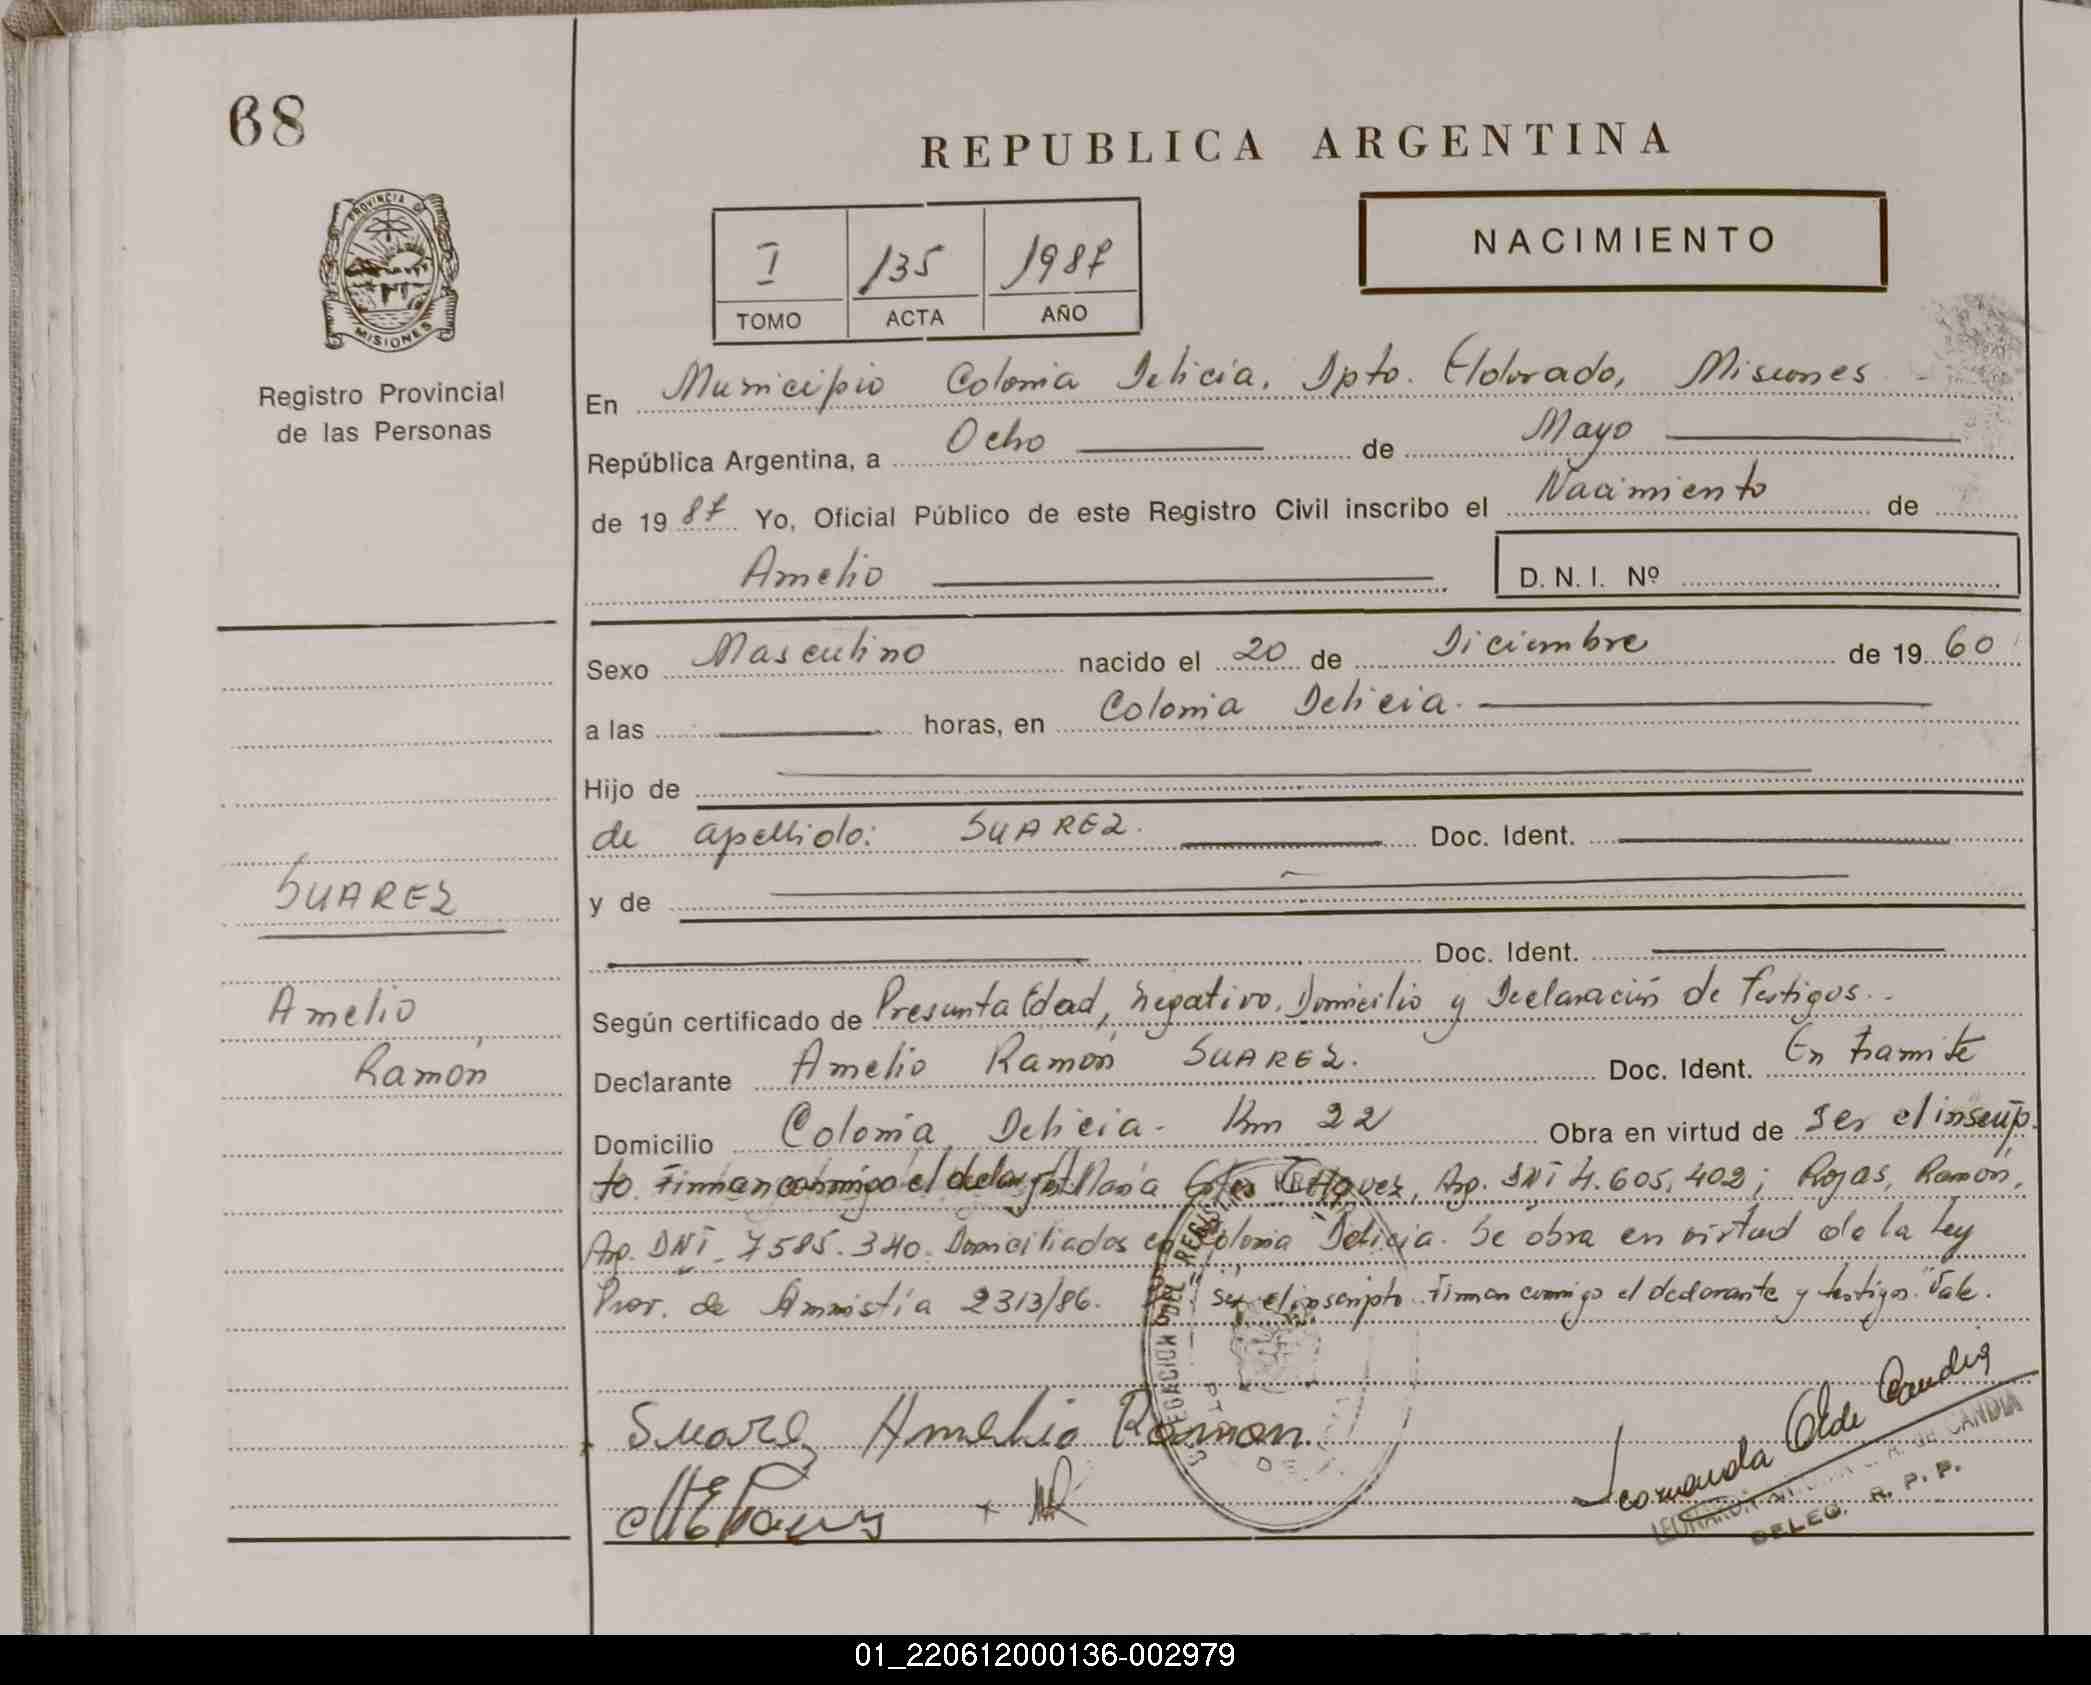 68
REPUBLICA ARGENTINA
PROVINCIA DE
MISIONES
Registro Provincial
de las Personas
I 135 1987
TOMO ACTA AÑO
NACIMIENTO
En Municipio Colonia Delicia, Dpto. Eldorado, Misiones
República Argentina, a Ocho de Mayo
de 19 87 Yo, Oficial Público de este Registro Civil inscribo el Nacimiento de
Amelio D. N. I. Nº
Sexo Masculino nacido el 20 de Diciembre de 19 60
a las horas, en Colonia Delicia.
Hijo de
de apellido: SUAREZ. Doc. Ident.
y de
Doc. Ident.
SUAREZ
Amelio
Ramón
Según certificado de Presunta Edad, negativo, Domicilio y Declaración de Testigos.
Declarante Amelio Ramón SUAREZ. Doc. Ident. En tramite
Domicilio Colonia Delicia. Km 22 Obra en virtud de Ser el inscrip-
to. Firman conmigo el María Ester Arg. DNI 4.605.402; Rojas, Ramón,
Arg. DNI. 7585.340. Domiciliados en Colonia Delicia. Se obra en virtud de la Ley
Prov. de Amnistía 2313/86. ser el inscripto. Firman conmigo el declarante y testigos. Vale.
Suarez Amelio Ramon
DELEGACION DEL REGIST
de Candia
DE CANDIA
DELEG. R. P. P.
01_220612000136-002979